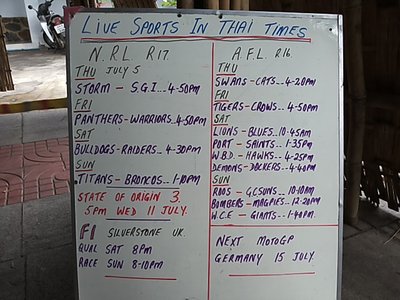 LIVE SPORTS IN THAI TIMES
N.R.L R17.
THU JULY 5
STORM - S.G.I...4-50PM
FRI
PANTHERS-WARRIORS..4-50PM
SAT
BULLDOGS-RAIDERS..4-30PM
SUN
TITANS-BRONCOS..1-10PM
STATE OF ORIGIN 3.
5PM WED 11 JULY.
F1 SILVERSTONE UK.
QUAL SAT 8PM
RACE SUN 8-10PM
A.F.L. R16.
THU
SWANS-CATS...4-20PM
FRI
TIGERS-CROWS..4-50PM
SAT
LIONS-BLUES..10-45AM
PORT - SAINTS..1-35PM
W.B.D.-HAWKS..4-25PM
DEMONS-DOCKERS..4-40PM
SUN
ROOS - GCSUNS...10-10AM
BOMBERS-MAGPIES..12-20PM
W.C.E - GIANTS..1-40PM.
NEXT MOTOGP
GERMANY 15 JULY.